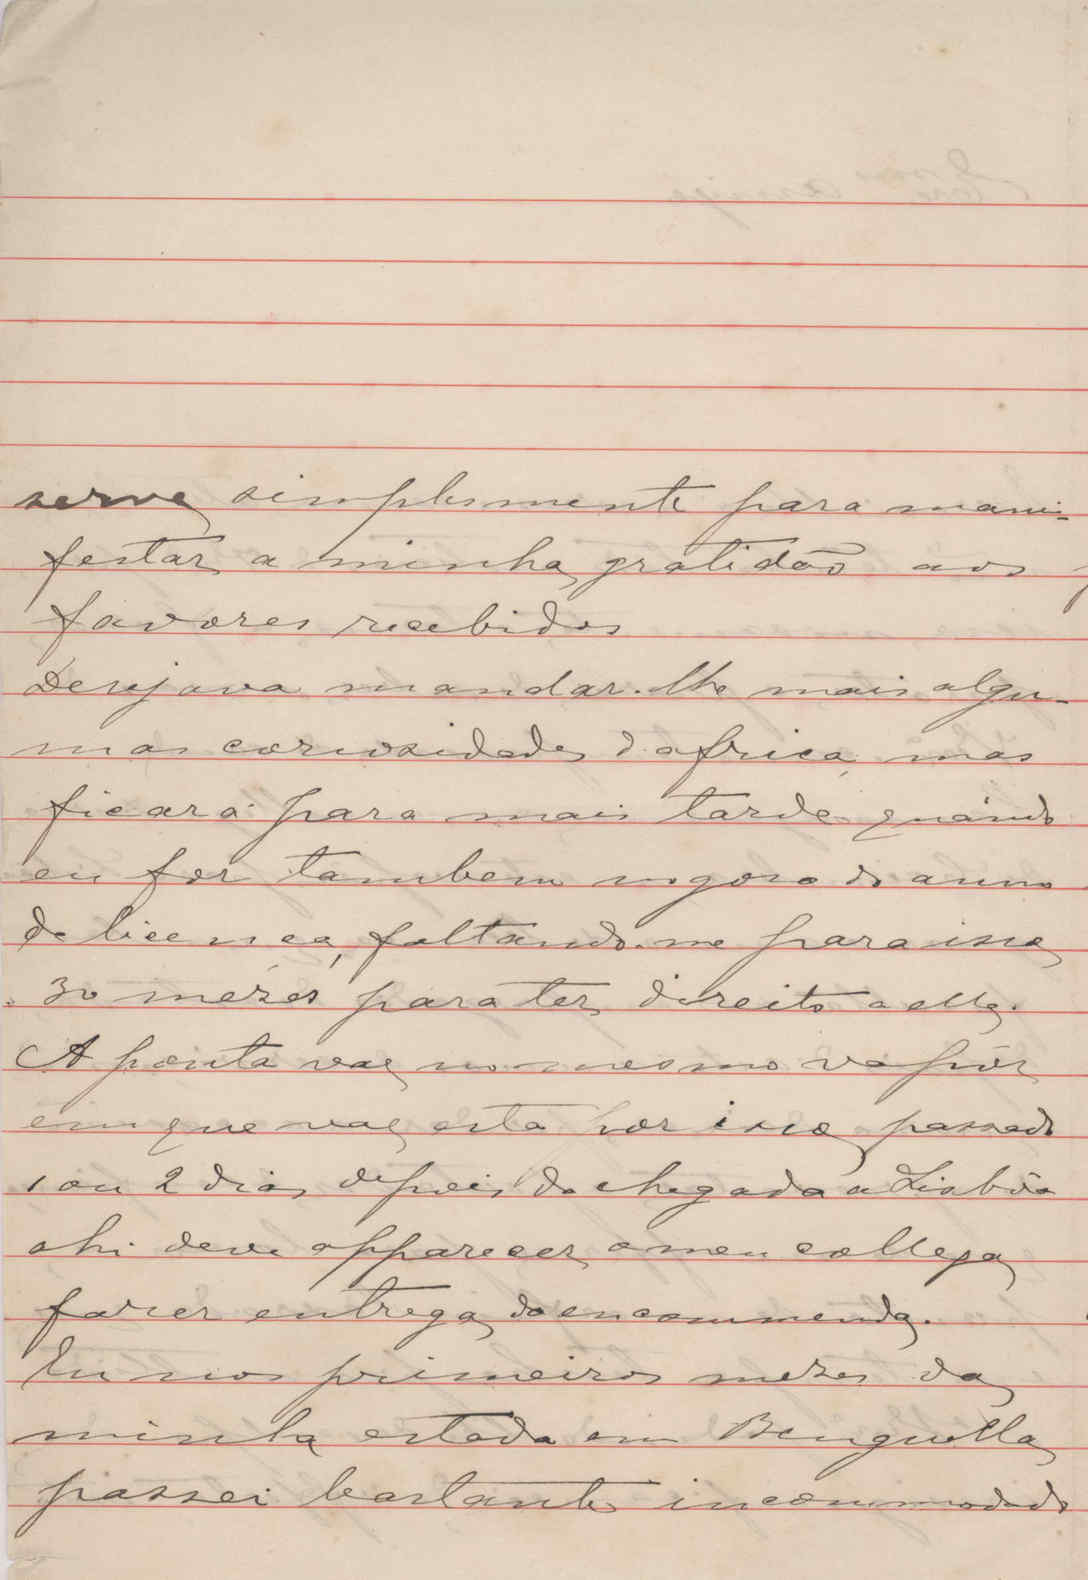 serve simplesmente para mani-
festar a minha gratidão aos
favores recebidos
Desejava mandar-lhe mais algu-
mas coriosidades d'africa, mas
ficará para mais tarde quando
eu for tambem no goso do anno
de licença, faltando-me para isso
30 mezes para ter direito a ella.
A ponta vae no mesmo vapôr
em que vae esta por isso passado
1 ou 2 dias depois da chegada a Lisbôa
ahi deve apparecer o meu collega
fazer entrega da encommenda.
Eu nos primeiros mezes da
minha estada em Benguella
passei bastante incommodado